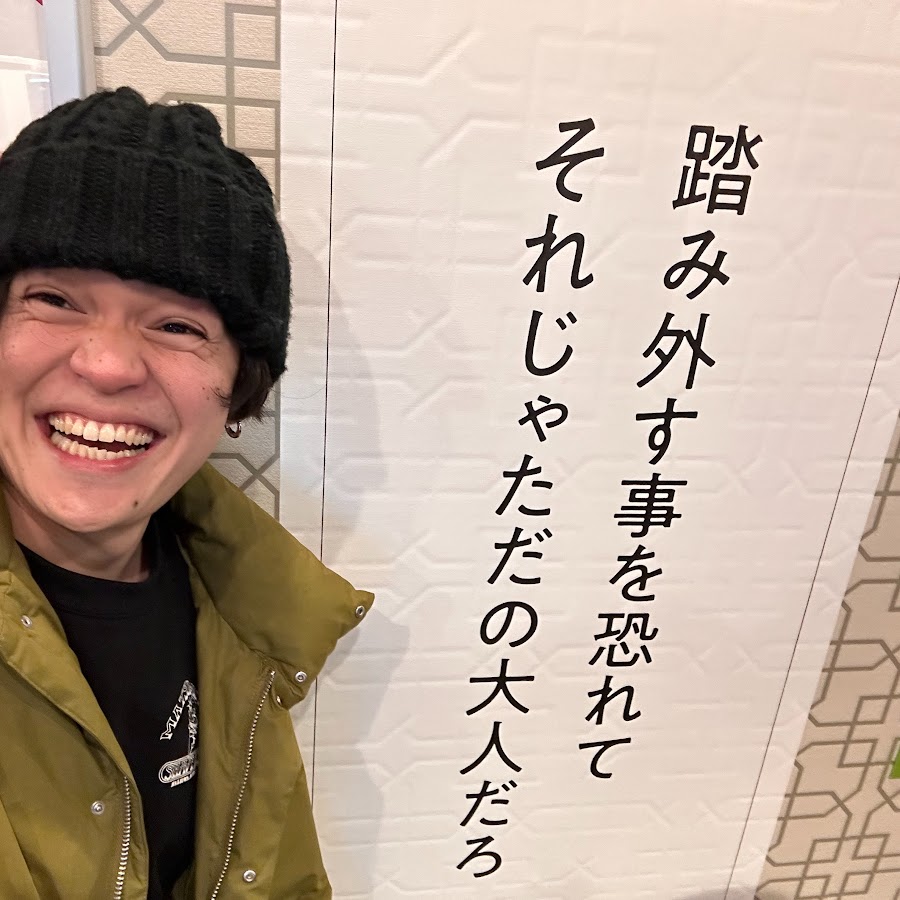 踏み外す事を恐れて
それじゃただの大人だろ